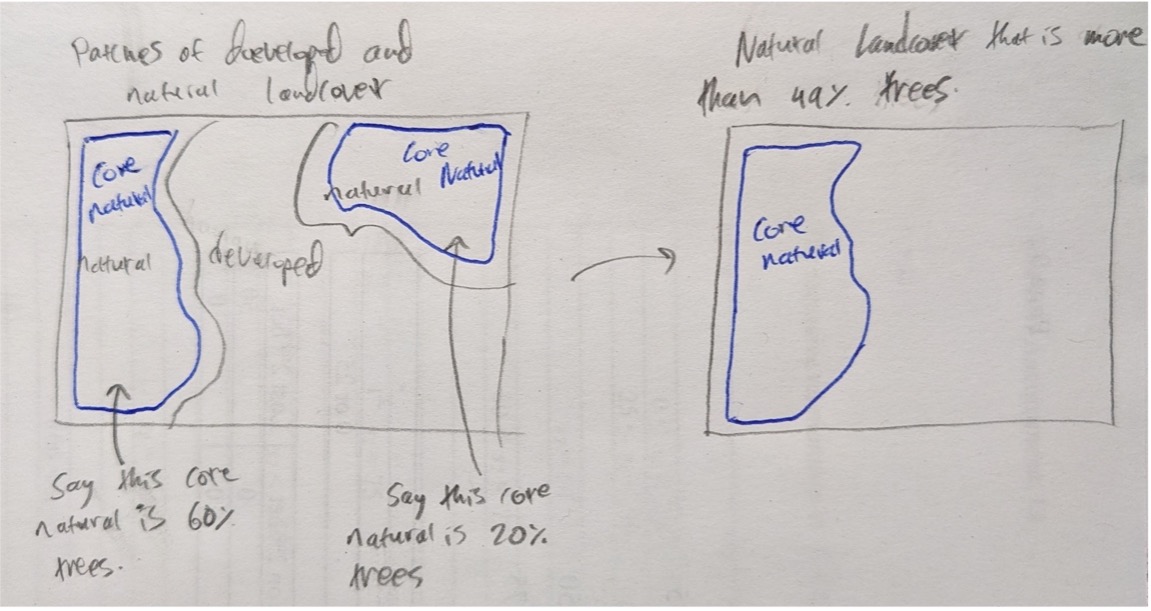 Patches of developed and
natural landcover
Core
natural
natural
developed
natural
Core
Natural
Say this core
natural is 60%
trees.
Say this core
natural is 20%
trees
Natural landcover that is more
than say. trees.
Core
natural